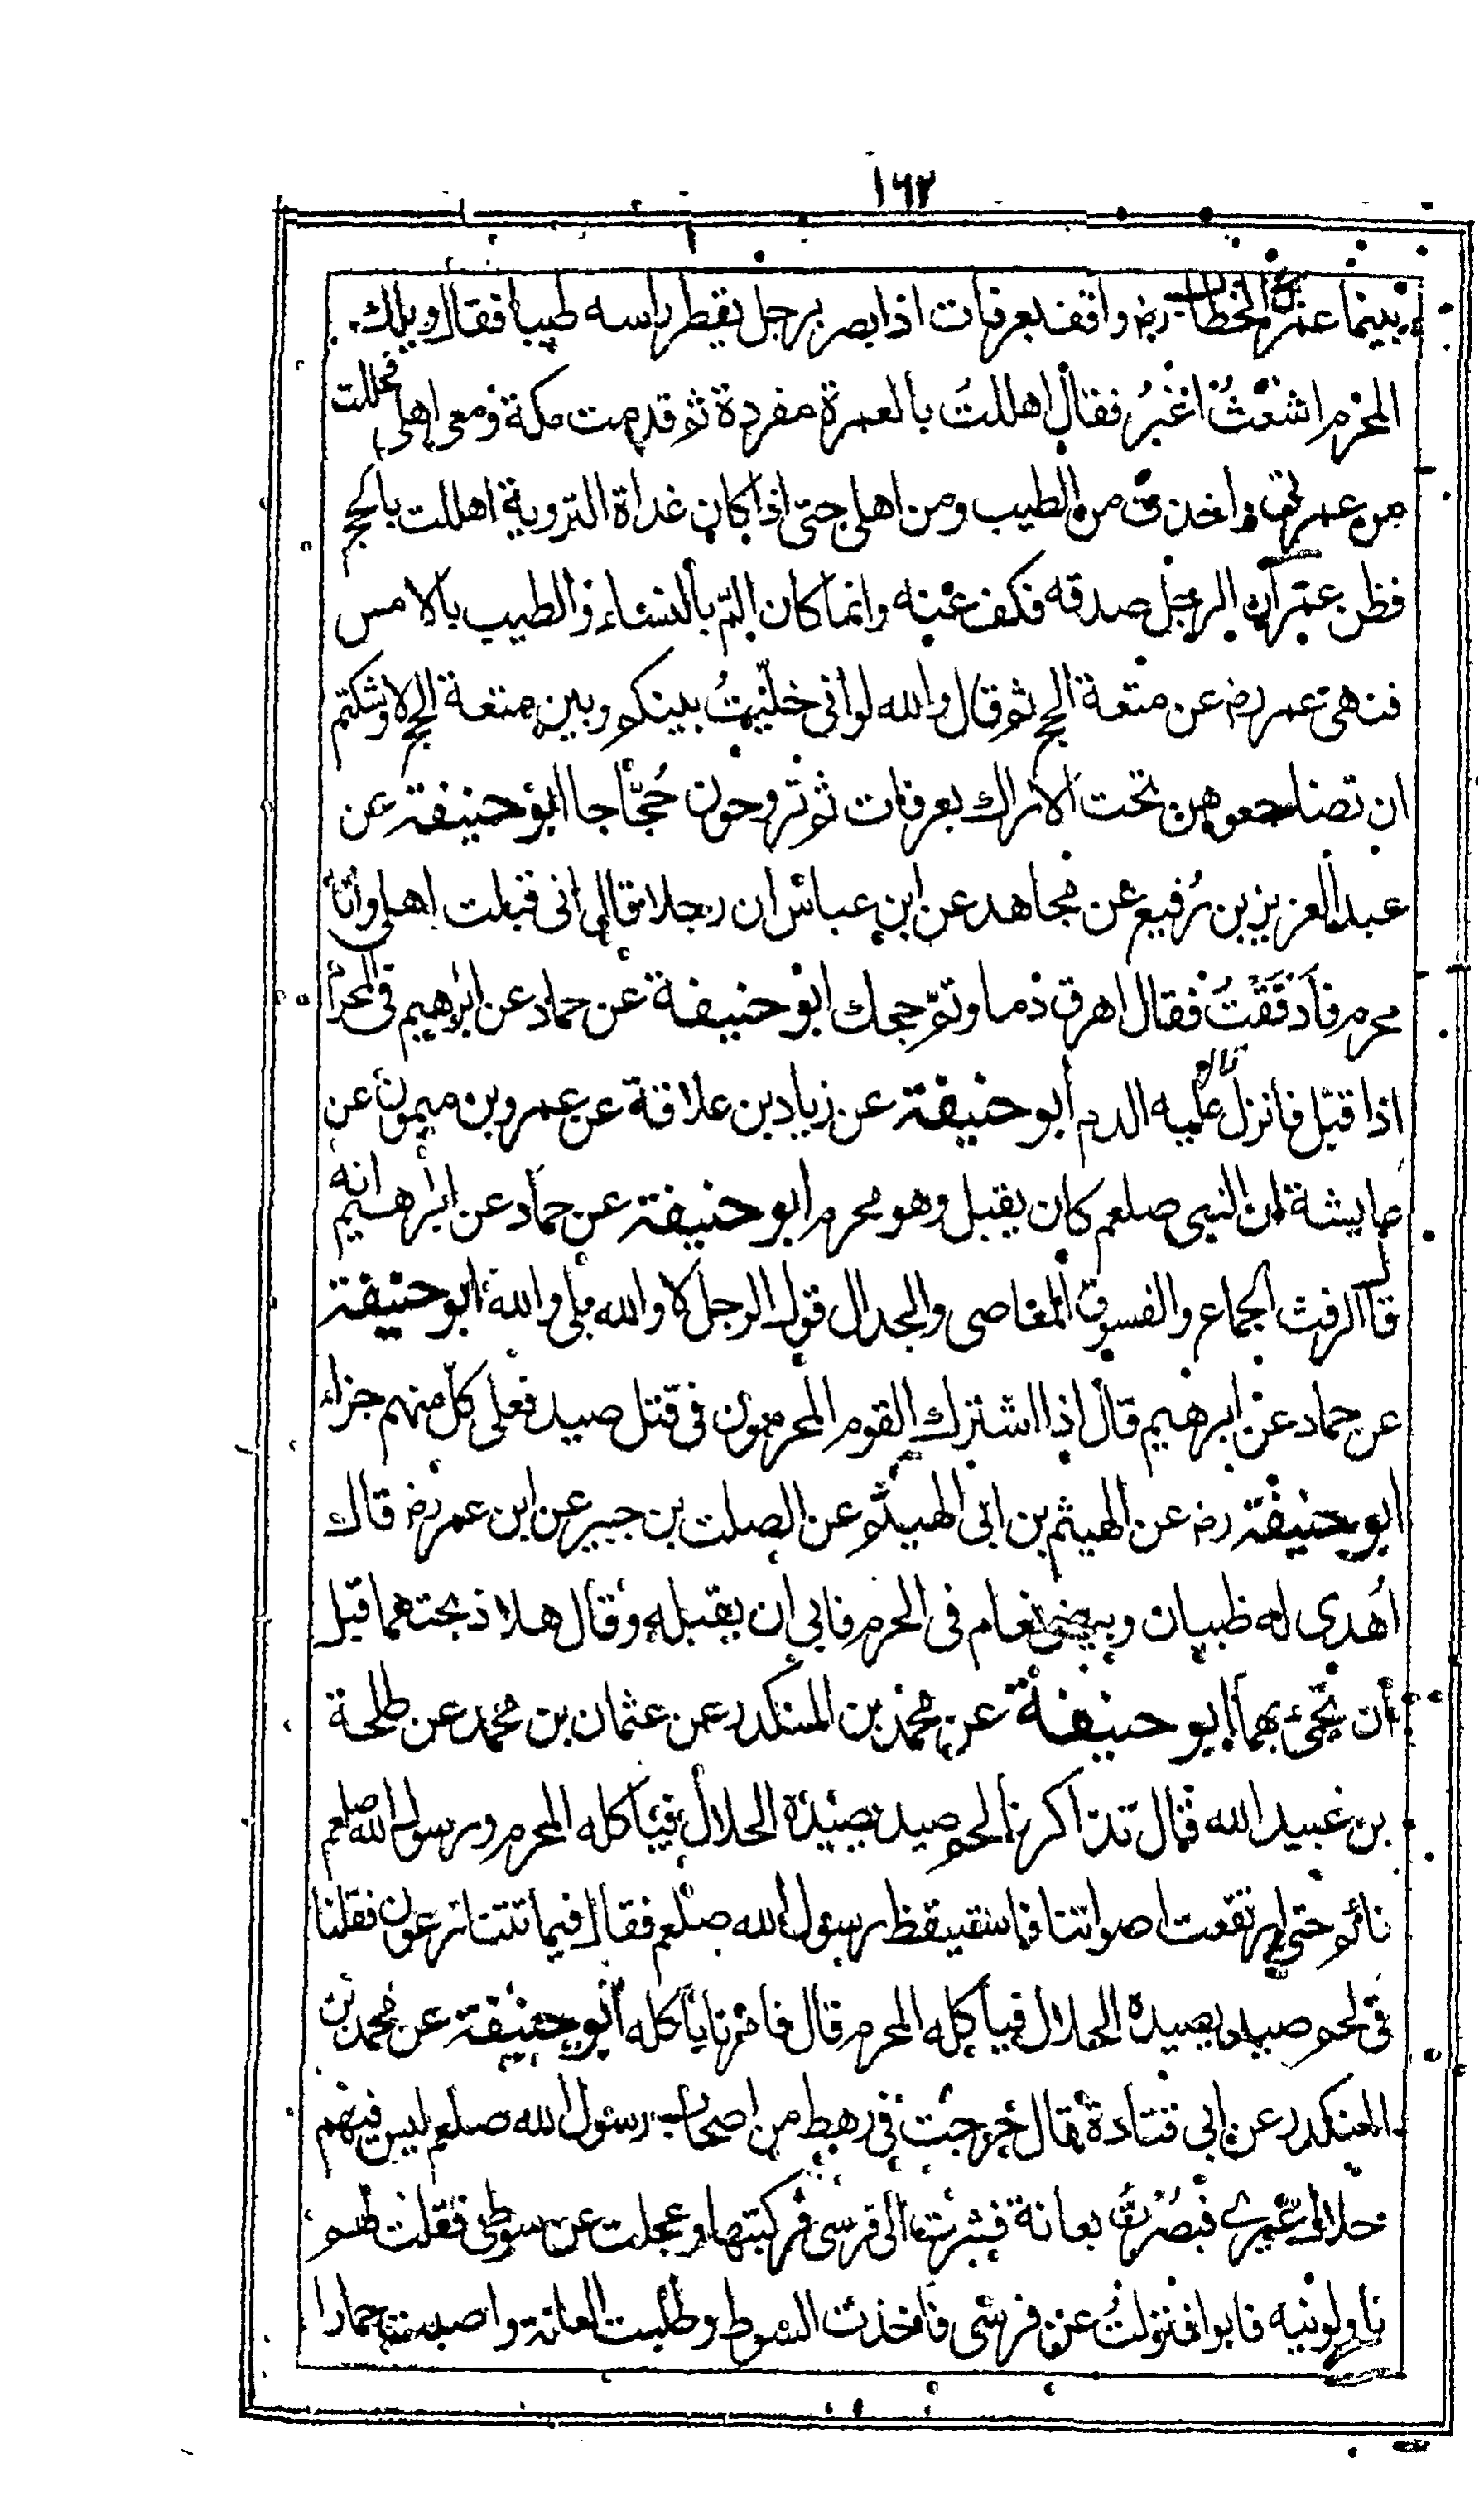 ١٦٢
بينما عمر بن الخطاب رض واقف بعرفات اذا بصر برجل يقطر راسه طيبا فقال ويلك
المحرم اشعثُ اغبرُ فقال اهللتُ بالعمرة مفردة ثم قدمت مكة ومعى اهلى فحللت
من عمرتى واخذت من الطيب ومن اهلى حتى اذا كان غداة التروية اهللت بالحج
فظن عمر ان الرجل صدقه فكف عنه وانما كان الم بالنساء والطيب بالامس
فنهى عمر رض عن متعة الحج ثم قال والله لو انى خليتُ بينكم وبين متعة الحج لاوشكتم
ان تضاجعوهن تحت الاراك بعرفات ثم تروحون حُجّاجا ابو حنيفة عن
عبد العزيز بن رُفيع عن مجاهد عن ابن عباس ان رجلا قال انى قبلت اهلى وانا
محرم فادفقتُ فقال اهرق دما وتم حجك ابو حنيفة عن حماد عن ابرهيم فى المحرم
اذا قبّل فانزل قال عليه الدم ابو حنيفة عن زياد بن علاقة عن عمرو بن ميمون عن
عايشة ان النبى صلعم كان يقبل وهو محرم ابو حنيفة عن حماد عن ابرهيم انه
قال الرفث الجماع والفسوق المعاصى والجدال قول الرجل لا والله بلى والله ابو حنيفة
عن حماد عن ابرهيم قال اذا اشترك القوم المحرمون فى قتل صيد فعلى كل منهم جزاء
ابو حنيفة رض عن الهيثم بن ابى الهيثم عن الصلت بن جبير عن ابن عمر رض قال
اُهدى له ظبيان وبيض نعام فى الحرم فابى ان يقبله وقال هلا ذبحتهما قبل
ان تجىء بهما ابو حنيفة عن محمد بن المنكدر عن عثمان بن محمد عن طلحة
بن عبيد الله قال تذاكرنا لحم صيد يصيده الحلال فياكله المحرم ورسول الله صلعم
نائم حتى ارتفعت اصواتنا فاستيقظ رسول الله صلعم فقال فيما تتنازعون فقلنا
فى لحم صيد يصيده الحلال فياكله المحرم قال فامرنا باكله ابو حنيفة عن محمد بن
المنكدر عن ابى قتادة قال خرجت فى رهط من اصحاب رسول الله صلعم ليس فيهم
حلال غيرى فبصُرتُ بعانة فثرت الى فرسى فركبتها وعجلت عن سوطى فقلت لهم
ناولونيه فابوا فنزلتُ عن فرسى فاخذت السوط وطلبت العانة واصبت منها حمارا